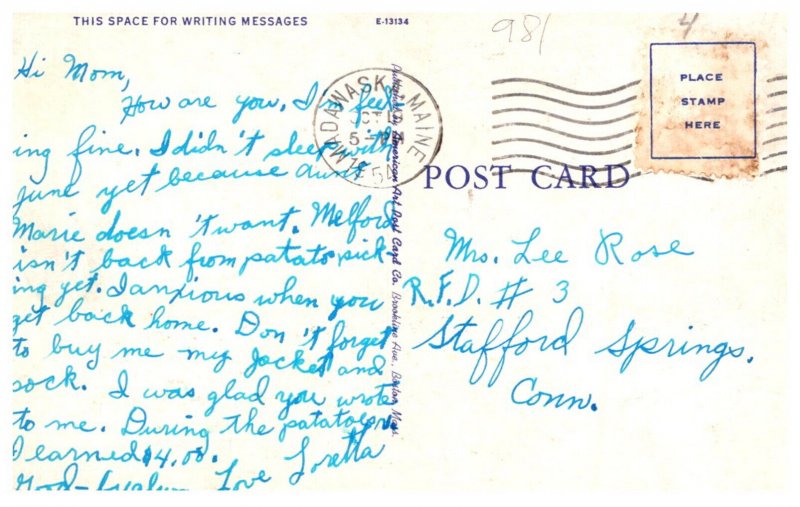 THIS SPACE FOR WRITING MESSAGES
E-13134
Hi Mom,
How are you. I'm feel-
ing fine. I didn't sleep with
june yet because aunt
Marie doesn't want. Melford
isn't back from patato pick-
ing yet. I anxious when you
get back home. Don't forget
to buy me my Jacket and
sock. I was glad you wrote
to me. During the patatoes
I earned $4.00.
Love Loretta
Good-
American Art Post Card Co. Brookline Ave., Boston, Mass.
981
4
MADAWASKA MAINE
54
PLACE
STAMP
HERE
POST CARD
Mrs. Lee Rose
R.F.D. # 3
Stafford Springs,
Conn.